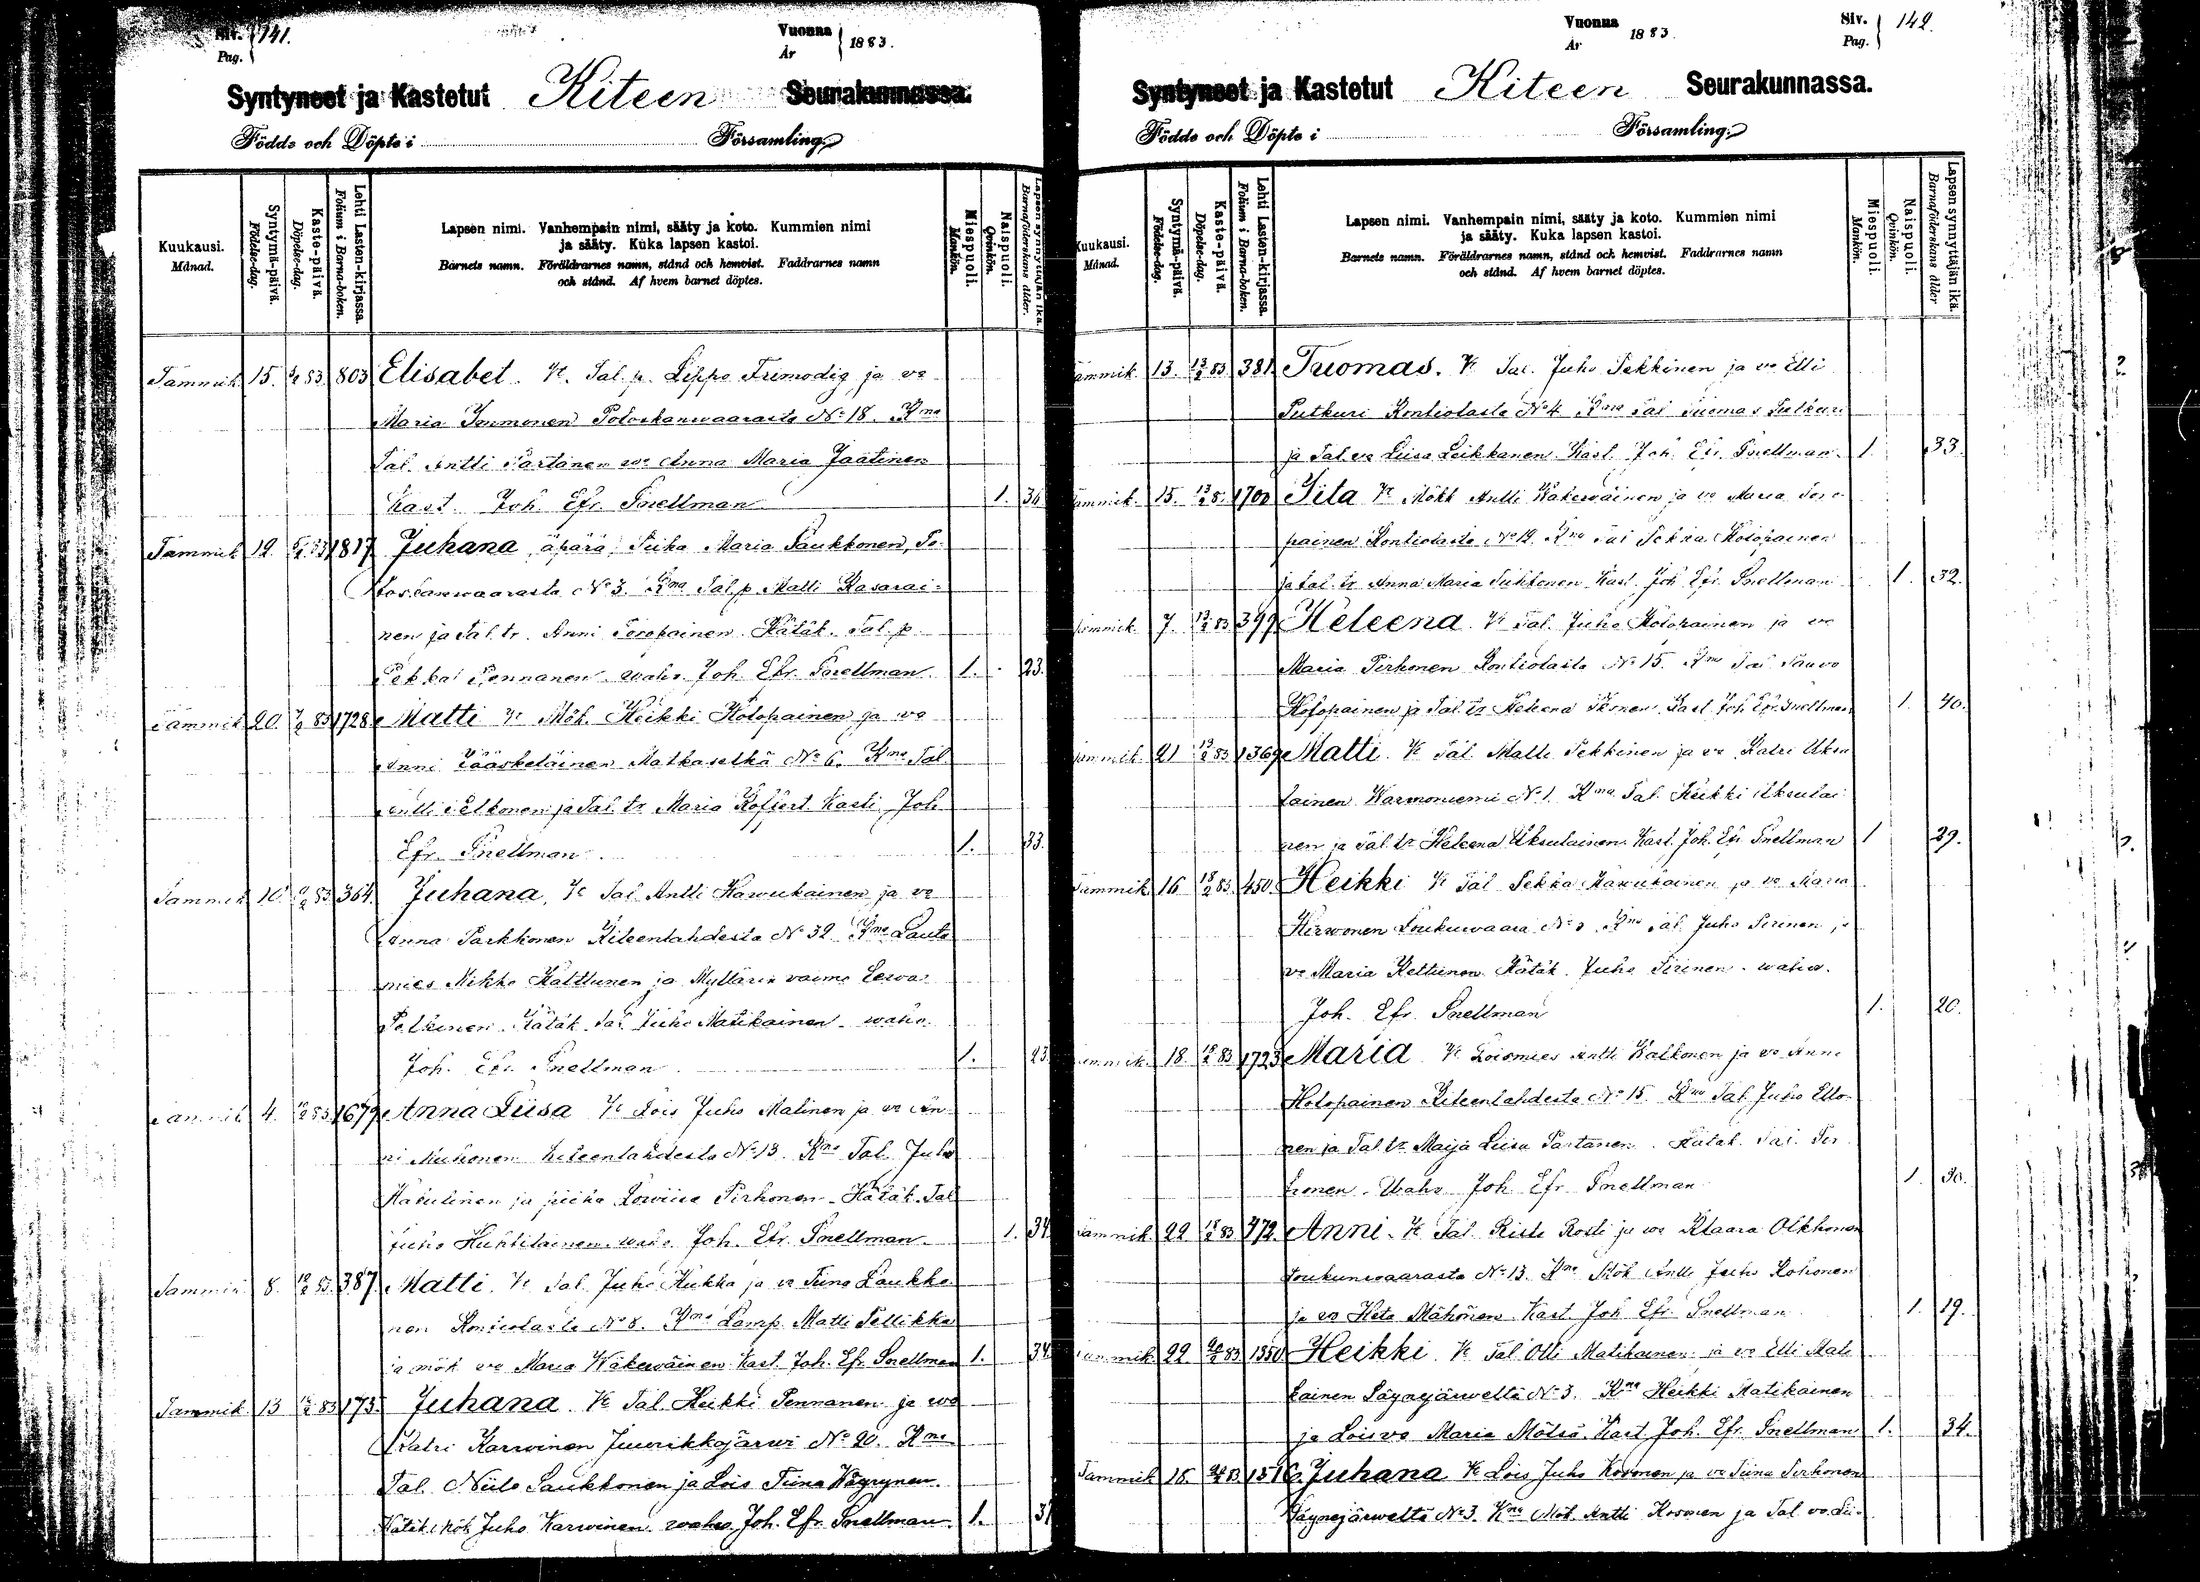 Siv. Pag. 141.
Vuonna År 1883.
Syntyneet ja Kastetut Kiteen Seurakunnassa.
Födde och Döpte i Församling
Kuukausi. Månad.
Syntymä-päivä. Födelse-dag.
Kaste-päivä. Döpelse-dag.
Lehti Lasten-kirjassa. Folium i Barna-boken.
Lapsen nimi. Vanhempain nimi, sääty ja koto. Kummien nimi
ja sääty. Kuka lapsen kastoi.
Barnets namn. Föräldrarnes namn, stånd och hemvist. Faddrarnes namn
och stånd. Af hvem barnet döptes.
Miespuoli. Mankön.
Naispuoli. Qvinkön.
Lapsen synnyttäjän ikä. Barnaföderskans ålder.
Tammik. 15. 83 803 Elisabet. Vt. Tal. p. Lippo Frimodig ja vo
Maria Immonen Potoskanwaarasta No 18. Kmo
Tal. Antti Partanen vo Anna Maria Jaatinen
Kast. Joh Efr. Snellman 1. 36
Tammik 19. 1817 Juhana, äpärä, Piika Maria Paukkonen, Po-
toskanwaarasta No 3. Kmo Tal. p. Matti Kasarai-
nen ja Tal. tr. Anni Teropainen. Hätäk. Tal. p.
Pekka Pennanen wahv. Joh. Efr. Snellman. 1. 23.
Tammik 20. 83 1728 Matti Vt Mök. Heikki Holopainen ja vo
Anni Jääskeläinen Matkaselkä No 6. Kmo Tal
Antti Pelkonen ja Tal. tr. Maria Koffert Kasti Joh
Efr. Snellman. 1. 33.
Tammik 10. 83 364. Juhana, Vt Tal Antti Hawukainen ja vo
Anna Parkkonen Kiteenlahdesta No 32 Kmo Lauta
mies Mikko Kalttunen ja Myllärin vaimo Eewa
Pelkinen Hätäk. Tal. Juho Matikainen wahv.
Joh. Efr. Snellman 1. 23.
Tammik 4. 83 1679 Anna Liisa Vt Lois Juho Malinen ja vo An-
ni Muhonen Kiteenlahdesta No 13. Kmo Tal. Juho
Hakulinen ja piika Lowiisa Pirhonen Hätäk. Tal
Juho Huhtilainen wahv. Joh. Efr. Snellman. 1. 34.
Tammik 8. 83. 387 Matti. Vt Tal. Juho Kukka ja vo Tiina Laukka
nen Kontiolasta No 8. Kmo Lamp. Matti Pellikka
ja mök vo Maria Wäkewäinen Kast. Joh. Efr. Snellman 1. 34.
Tammik. 13 83 173 Juhana. Vt Tal. Heikki Pennanen ja vo
Katri Karwinen Juurikkajärwi No 20. Kmo
Tal. Niilo Saukkonen ja Lois Tiina Väyrynen.
Hätäk. Mök Juho Karwinen. wahv. Joh. Efr. Snellman. 1. 31
Siv. Pag. 142.
Vuonna År 1883.
Syntyneet ja Kastetut Kiteen Seurakunnassa.
Födde och Döpte i Församling
Kuukausi. Månad.
Syntymä-päivä. Födelse-dag.
Kaste-päivä. Döpelse-dag.
Lehti Lasten-kirjassa. Folium i Barna-boken.
Lapsen nimi. Vanhempain nimi, sääty ja koto. Kummien nimi
ja sääty. Kuka lapsen kastoi.
Barnets namn. Föräldrarnes namn, stånd och hemvist. Faddrarnes namn
och stånd. Af hvem barnet döptes.
Miespuoli. Mankön.
Naispuoli. Qvinkön.
Lapsen synnyttäjän ikä. Barnaföderskans ålder
Tammik. 13. 13/2 83 381 Tuomas. Vt Tal. Juho Pekkinen ja vo Elli
Putkuri Kontiolasta No 4 Kmo Tal Tuomas Putkuri
ja Tal. vo Liisa Leikkanen Kast. Joh. Efr. Snellman. 1. 33.
Tammik. 15. 13/2 1700 Iita Vt Mökk Antti Wäkewäinen ja vo Maria Tero-
painen Kontiolasta No 12. Kmo Tal Pekka Holopainen
ja tal. tr. Anna Maria Tukkonen Kast. Joh Efr. Snellman 1. 32.
Tammik. 7. 13/2 83 399 Heleena. Vt Tal. Juho Holopainen ja vo
Maria Pirhonen Kontiolasta No 15. Kmo Tal Paavo
Holopainen ja Tal. tr Helena Ikonen. Kast. Joh. Efr. Snellman 1. 40.
Tammik. 21 13/2 83 1369 Matti. Vt Tal. Matti Pekkinen ja vo Katri Uksu
lainen Warmoniemi No 1. Kmo Tal. Heikki Uksulai-
nen ja Tal. tr. Heleena Uksulainen. Kast. Joh. Efr. Snellman 1 29.
Tammik 16 18/2 83. 450. Heikki Vt Tal Pekka Hawukainen ja vo Maria
Hirwonen Loukuwaara No 3 Kmo Tal. Juho Sirenen ja
vo Maria Kettunen Hätäk. Juho Sirenen. wahv.
Joh. Efr. Snellman 1. 20.
Tammik. 18. 18/2 83 1723 Maria Vt Loismies Antti Kalkonen ja vo Anni
Holopainen Kiteenlahdesta No 15. Kmo Tal. Juho Ello-
nen ja Tal. tr. Maija Liisa Partanen. Hätäk. Tal. Pir
honen. Wahv. Joh. Efr. Snellman 1. 30.
Tammik. 22 18/2 83 772. Anni. Vt Tal. Risto Rosti ja vo Klaara Olkkonen
Loukunwaarasta No 13. Kmo Mök Antti Juho Kohonen
ja vo Heta Mähönen Kast. Joh. Efr. Snellman 1. 19.
Tammik 22 83 1350 Heikki. Vt Tal Olli Matikainen ja vo Elli Mati
kainen Säynejärweltä No 3. Kmo Heikki Matikainen
ja Lois vo Maria Mölsä. Kast. Joh. Efr. Snellman 1. 34.
Tammik 15 83 Juhana Vt Lois Juho Kosonen ja vo Tiina Pirhonen
Säynejärweltä No 3. Kmo Mök. Antti Kosonen ja Tal vo Lii-